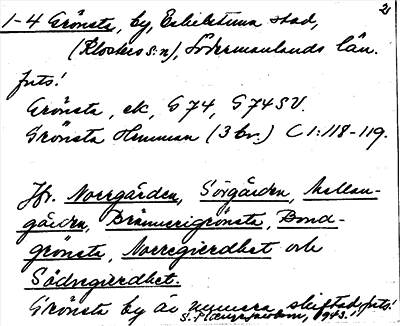 21
1-4 Grönsta, by, Eskilstuna stad,
(Klosters s:n), Södermanlands län.
Juts!
Grönsta, ek, G 74, G 74 SV.
Grönsta Hemman (3 br.) C 1:118-119.
Jfr. Norrgården, Sörgården, Mellan-
gården, Brännerigrönsta, Bond-
grönsta, Norregierdhet och
Södregierdhet.
Grönsta by är numera skiftad, juts!
1943.